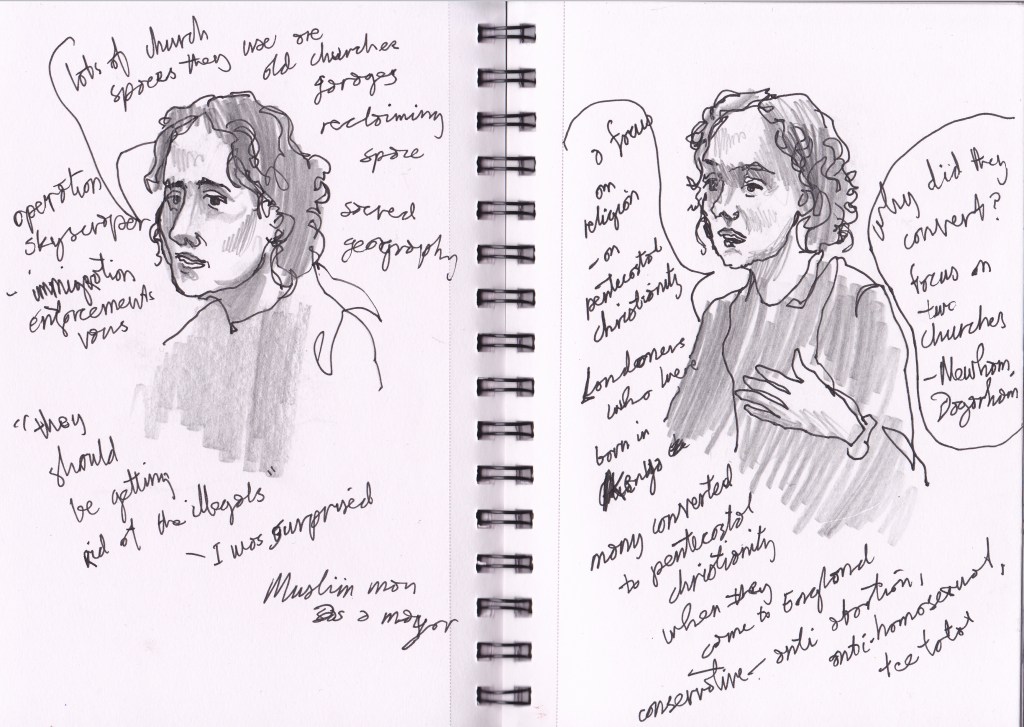 lots of church
spaces they use are
old churches
garages
reclaiming
space
sacred
geography
operation
skyscraper
- immigration
enforcements
vans
"they
should
be getting
rid of the illegals"
- I was surprised
Muslim man
as a mayor
a focus
on
religion
- on
pentecostal
christianity
Londoners
who were
born in
Kenya
many converted
to pentecostal
christianity
when they
came to England
conservative - anti abortion,
anti-homosexual,
teetotal
why did they
convert?
focus on
two
churches
- Newham,
Dagenham